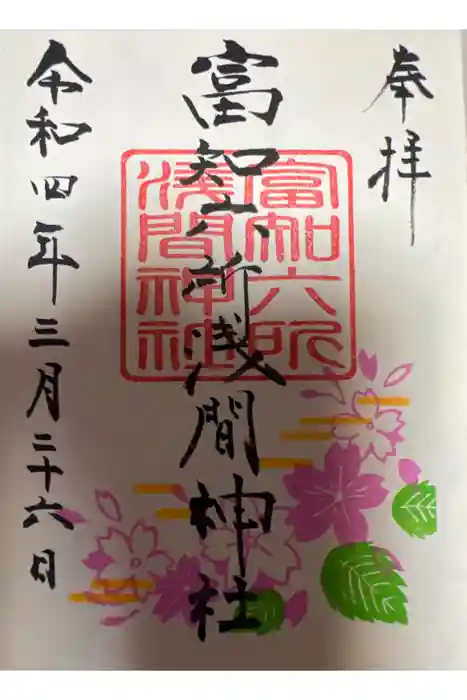 奉拝
富知六所浅間神社
富知六所
浅間神社
令和四年三月二十六日